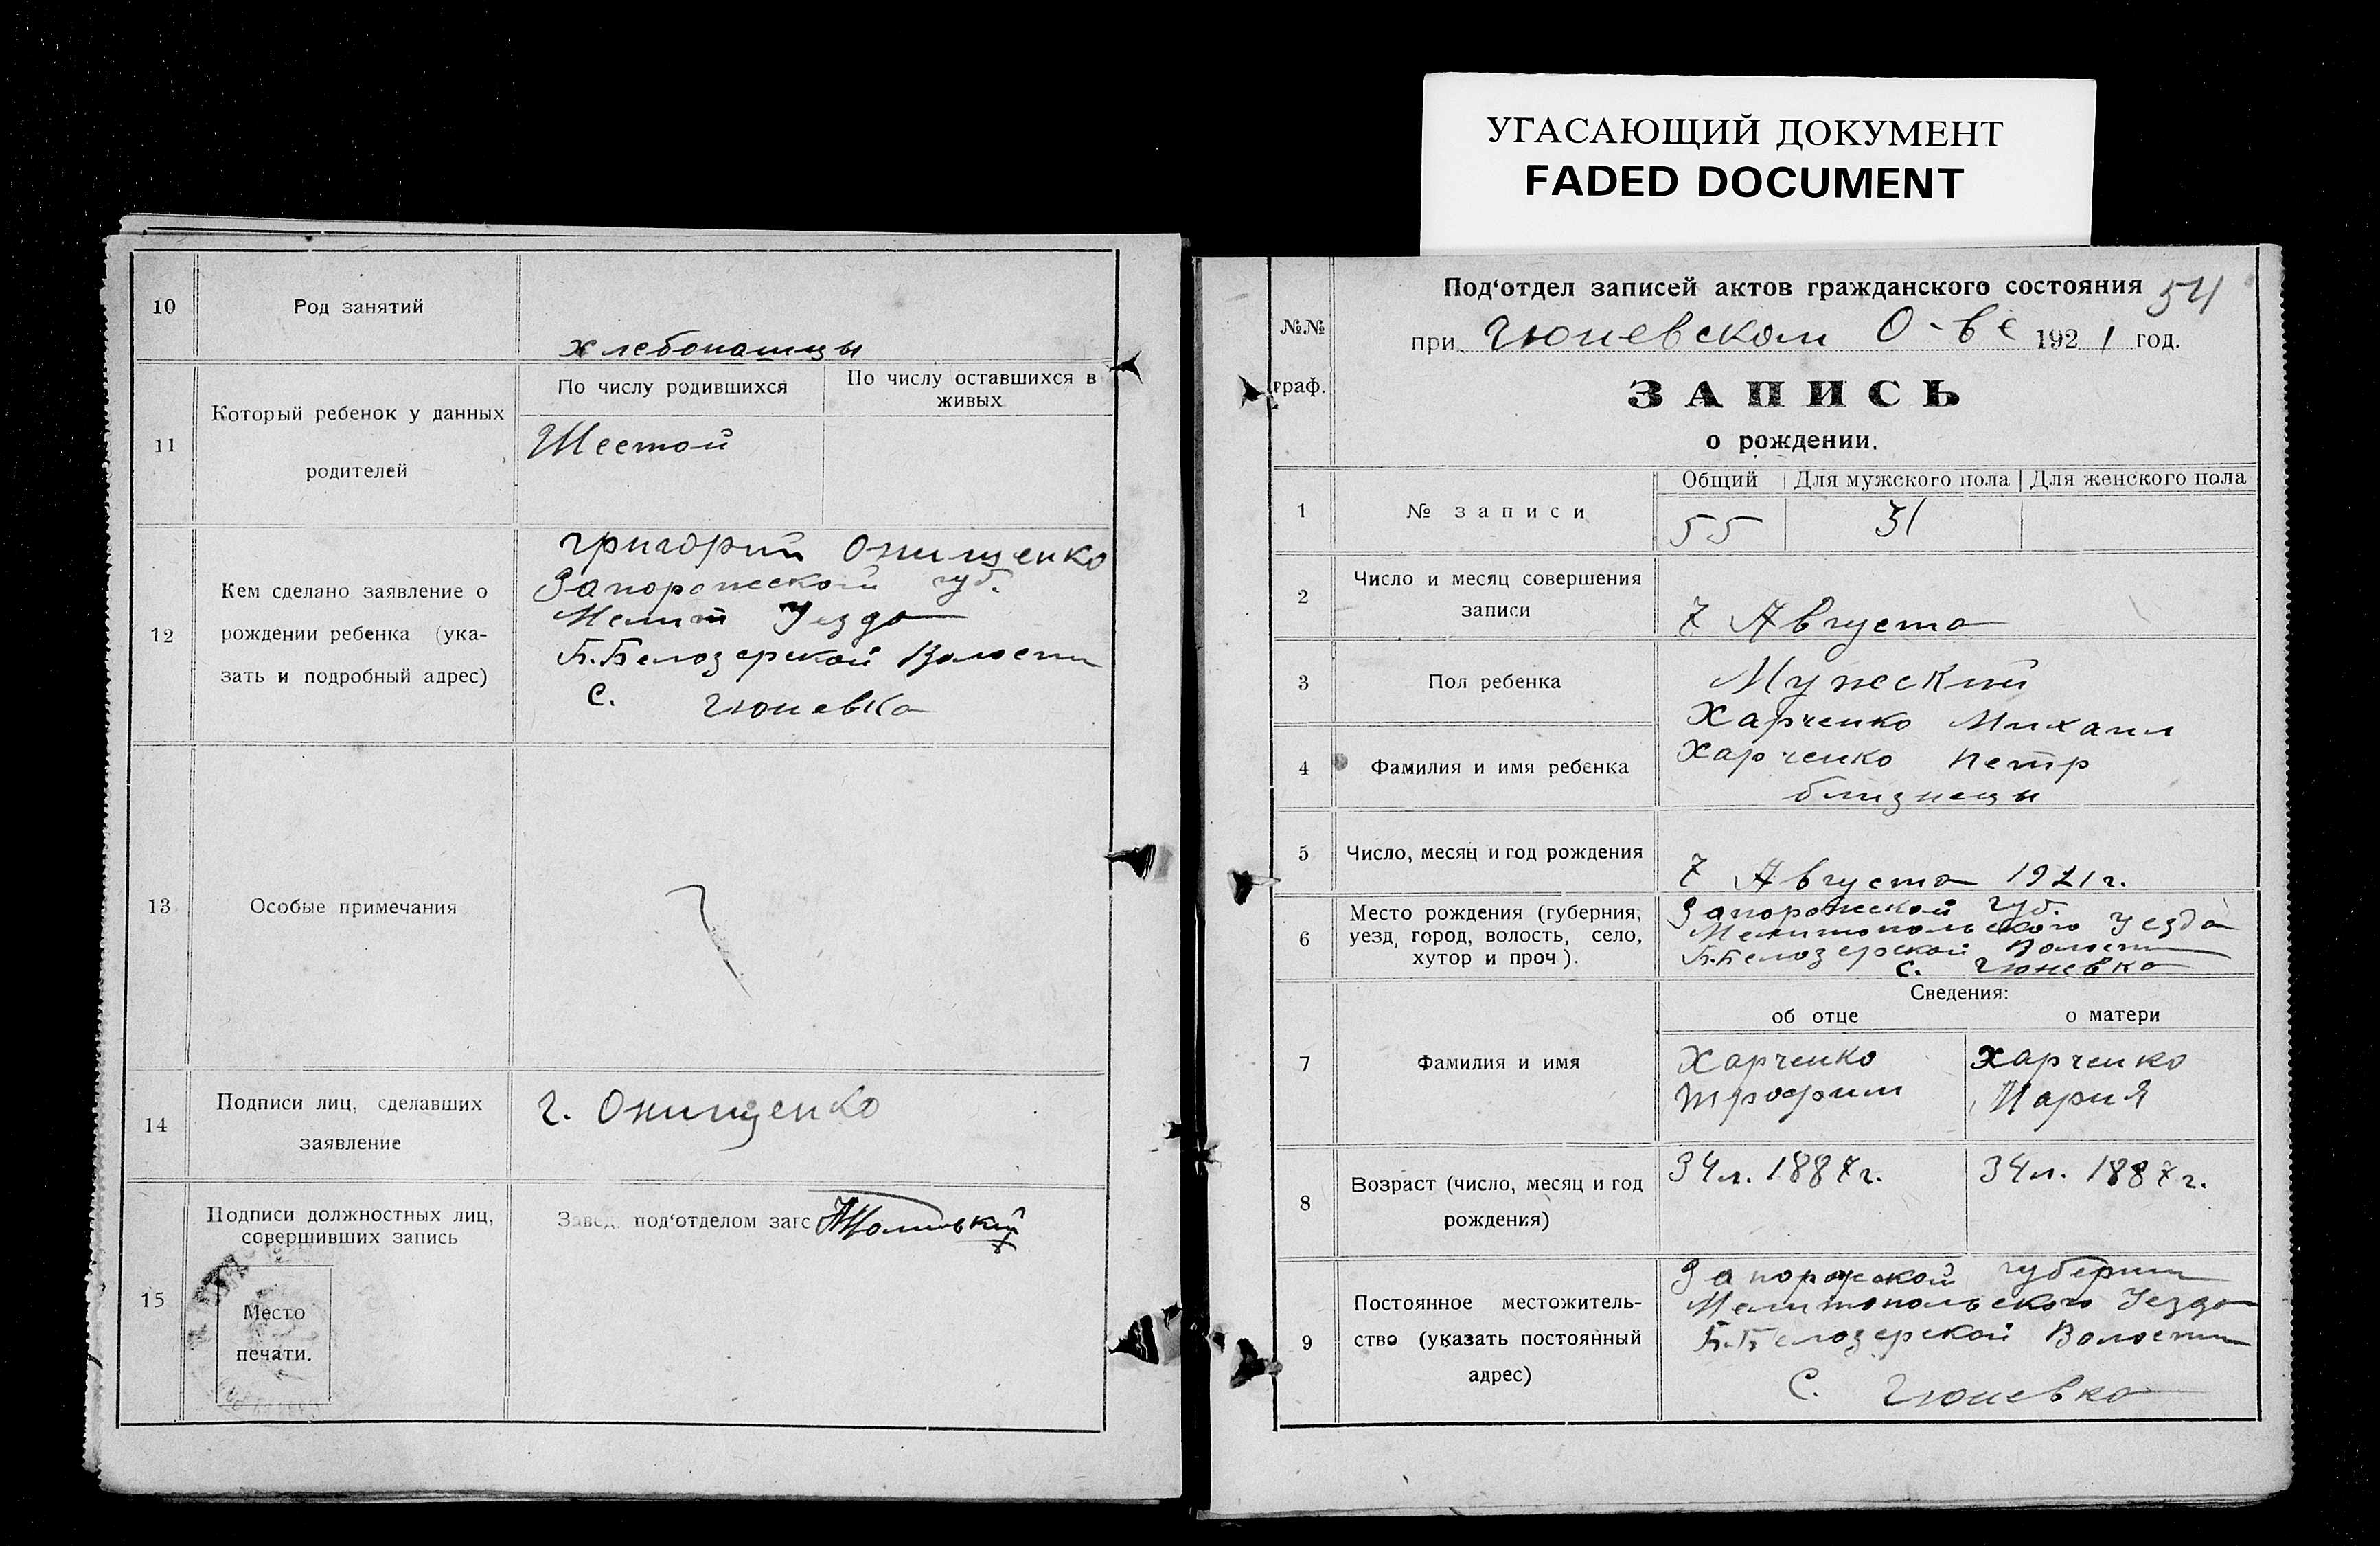 УГАСАЮЩИЙ ДОКУМЕНТ
FADED DOCUMENT
10
Род занятий
хлебопашцы
11
Который ребенок у данных
родителей
По числу родившихся
По числу оставшихся в
живых
Шестой
12
Кем сделано заявление о
рождении ребенка (ука-
зать и подробный адрес)
Григорий Онищенко
Запорожской губ.
Мелит Уезда
Б.Белозерской Волости
С. Гюневка
13
Особые примечания
14
Подписи лиц, сделавших
заявление
Г. Онищенко
15
Подписи должностных лиц,
совершивших запись
Завед. под‘отделом загс
Место
печати.
54
№№
граф.
Под‘отдел записей актов гражданского состояния
при Гюневском О-ве 1921 год.
ЗАПИСЬ
о рождении.
1
№ записи
Общий
Для мужского пола
Для женского пола
55
31
2
Число и месяц совершения
записи
7 Августа
3
Пол ребенка
Мужеский
4
Фамилия и имя ребенка
Харченко Михаил
Харченко Петр
близнецы
5
Число, месяц и год рождения
7 Августа 1921 г.
6
Место рождения (губерния,
уезд, город, волость, село,
хутор и проч).
Запорожеской губ.
Мелитопольского Уезда
Б.Белозерской Волости
с. Гюневка
Сведения:
об отце
о матери
7
Фамилия и имя
Харченко
Трофим
Харченко
Мария
8
Возраст (число, месяц и год
рождения)
34 л. 1887 г.
34 л. 1887 г.
9
Постоянное местожитель-
ство (указать постоянный
адрес)
Запорожской губернии
Мелитопольского Уезда
Б.Белозерской Волости
С. Гюневка